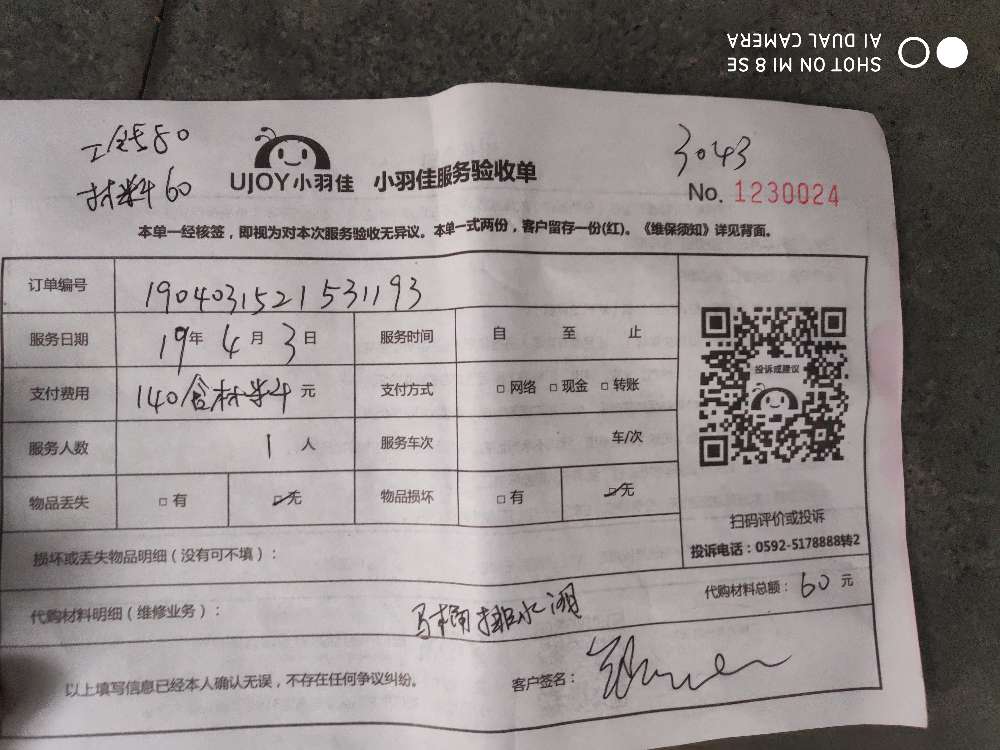 SHOT ON MI 8 SE
AI DUAL CAMERA
工钱80
材料60
UJOY小羽佳 小羽佳服务验收单
3043
No. 1230024
本单一经核签，即视为对本次服务验收无异议。本单一式两份，客户留存一份(红)。《维保须知》详见背面。
订单编号 1904031521531193
服务日期 19年 4月 3日 服务时间 自 至 止
支付费用 140含材料 元 支付方式 □网络 □现金 □转账
服务人数 1 人 服务车次 车/次
物品丢失 □有 □无 物品损坏 □有 □无
投诉或建议
扫码评价或投诉
投诉电话：0592-5178888转2
损坏或丢失物品明细（没有可不填）：
代购材料明细（维修业务）： 马桶排水阀
代购材料总额：60元
以上填写信息已经本人确认无误，不存在任何争议纠纷。
客户签名：